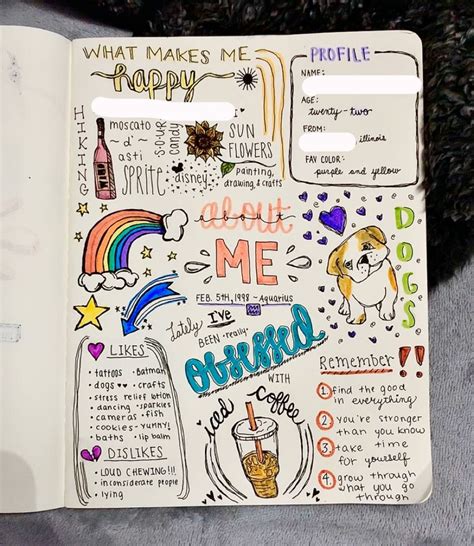 WHAT MAKES ME
happy
HIKING
moscato
~d'~
asti
SOUR
candy
SUN
FLOWERS
WINE
SPRITE
disney
painting,
drawing & crafts
PROFILE
NAME:
AGE:
twenty-two
FROM:
illinois
FAV COLOR:
purple and yellow
about
ME
FEB. 5TH, 1998 ~ Aquarius
DOGS
Lately I've
BEEN -really-
obsessed
WITH
iced coffee
LIKES
• tattoos • Batman
dogs • crafts
stress relief lotion
• dancing • sparkles
cameras • fish
cookies - yummy!
• baths • lip balm
DISLIKES
• LOUD CHEWING!!!
• inconsiderate people
• lying
Remember!!
1 find the good
in everything
2 you're stronger
than you know
3 take time
for yourself
4 grow through
what you go
through